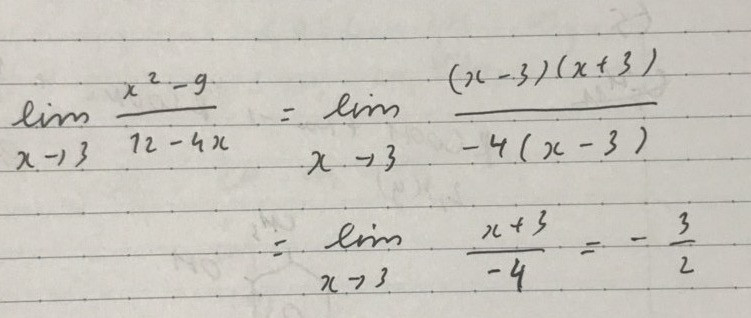 lim x→3 (x² - 9)/(12 - 4x) = lim x→3 ((x - 3)(x + 3))/(-4(x - 3))
= lim x→3 (x + 3)/(-4) = - 3/2